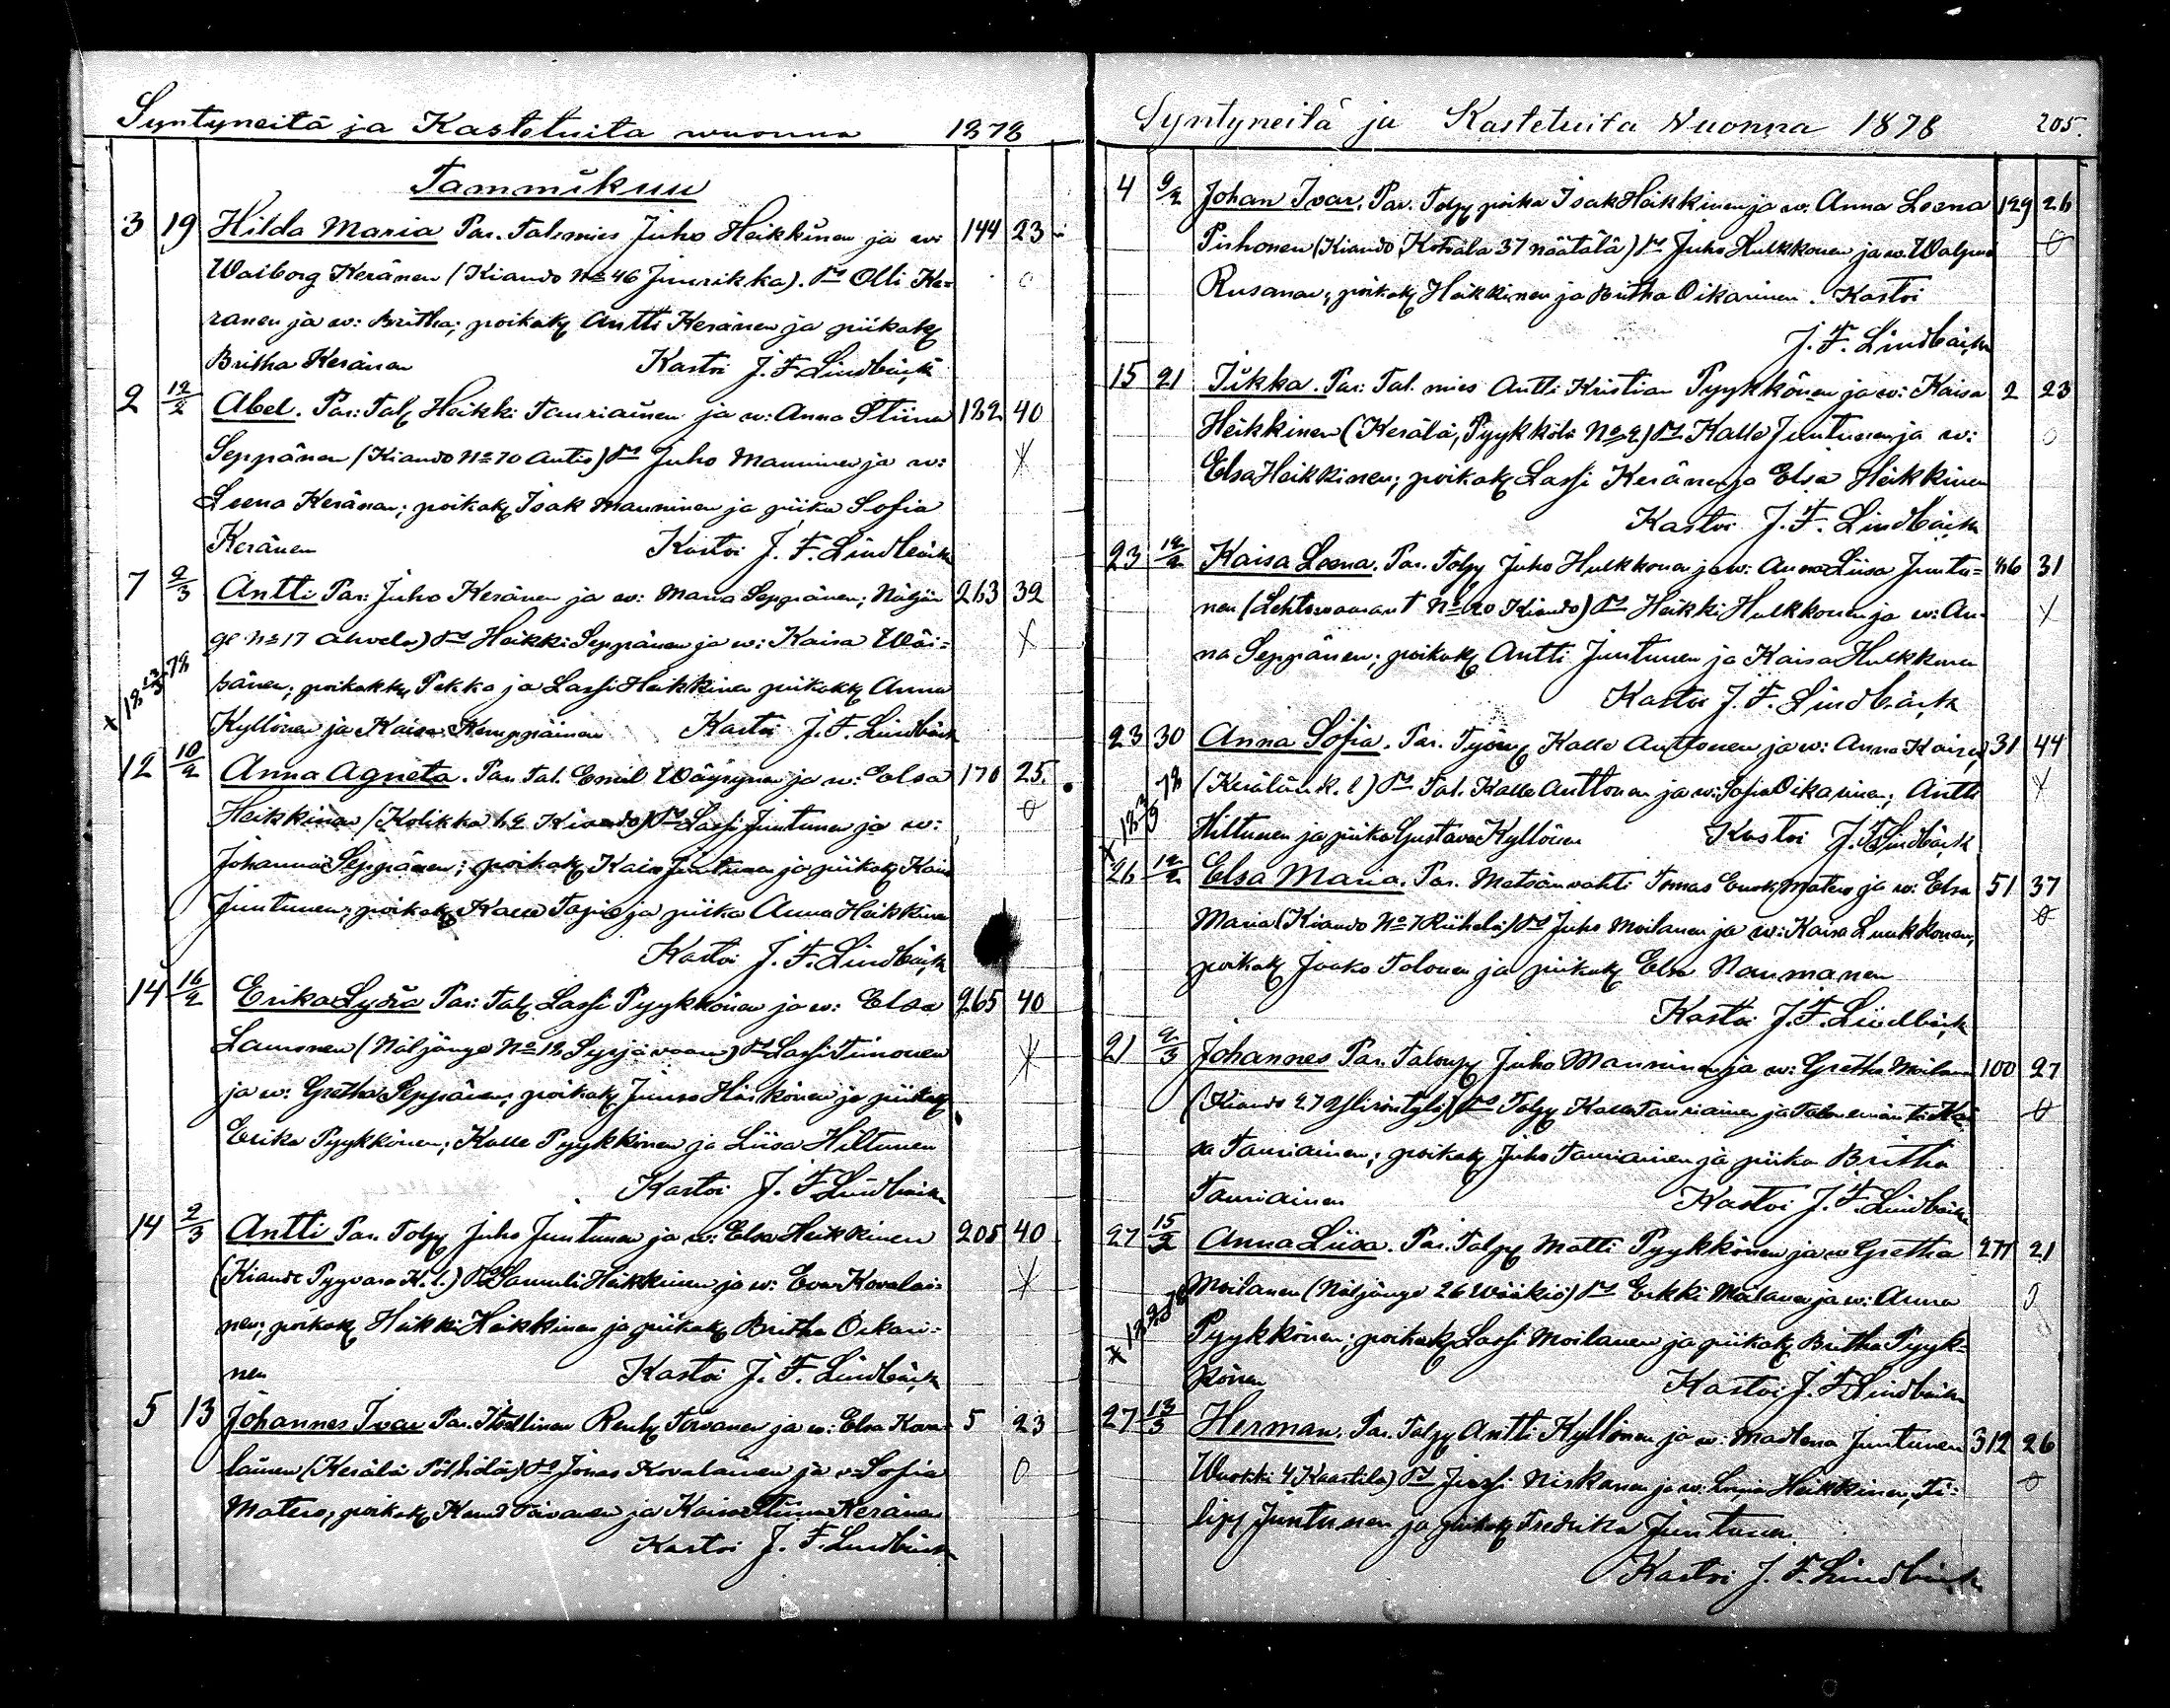 Syntyneitä ja Kastetuita wuonna 1878
Tammikuu
3 19 Hilda Maria Par. Talismies Juho Heikkinen ja w: 144 23
Walborg Keränen (Kiando No 46 Juurikka). Olli Ke=
ränen ja w: Britha; poikak Antti Keränen ja piikak
Britha Keränen Kastoi J. F. Lindbäck
2 12/2 Abel. Par: Tal Heikki Tauriainen ja w: Anna Stiina 132 40
Seppänen (Kiando No 70 Antio) Juho Manninen ja w:
Leena Keränen; poikak Isak Manninen ja piika Sofia
Keränen Kastoi J. F. Lindbäck
7 2/3 Antti Par: Juho Keränen ja w: Maria Seppänen; Näljän 263 32
ge No 17 Ahvela) Heikki Seppänen ja w: Kaisa Wäi=
sänen; poikakk Pekka ja Lassi Heikkinen piikakk Anna
Kyllönen ja Kaisa Kemppäinen Kastoi J. F. Lindbäck
12 10/2 Anna Agneta. Par. Tal. Emil Wäyrynen ja w: Elsa 170 25.
Heikkinen (Kolikko Kiando) Lassi Juntunen ja w:
Johanna Seppänen; poikak Juntunen ja piikak Kaisa
Juntunen; poikak Kalle Tapio ja piika Anna Heikkinen
Kastoi J. F. Lindbäck
14 16/2 Erika Lydia Par: Tal Lassi Pyykkönen ja w: Elsa 265 40
Lauronen (Näljänge No 12 Syrjävaara) Lassi Timonen
ja w: Gretha Seppänen; poikak Juuso Härkönen ja piikak
Erika Pyykkönen; Kalle Pyykkönen ja Liisa Hiltunen
Kastoi J. F. Lindbäck
14 2/3 Antti Par. Tolpp Juho Juntunen ja w: Elsa Heikkinen 205 40
(Kiando Pyyvaara K. l.) Samuli Heikkinen ja w: Eva Kovalai=
nen; poikak Heikki Heikkinen ja piikak Britha Oikari=
nen Kastoi J. F. Lindbäck
5 13 Johannes Ivar Par. Itsellinen Renk Torvanen ja w: Elsa Kova= 5 23
lainen (Kerälä Pölhölä) Jonas Kovalainen ja w: Sofia
Matero; poikak Torvanen ja Kaisa Stiina Keränen
Kastoi J. F. Lindbäck
Syntyneitä ja Kastetuita Wuonna 1878 205.
4 9/2 Johan Ivar. Par. Tolpp poika Isak Heikkinen ja w: Anna Leena 129 26
Pirhonen (Kiando Kotvala 37 näätälä) Juho Hulkkonen ja w. Walpuri
Rusanen; poikak Heikkinen ja Britha Oikarinen. Kastoi
J. F. Lindbäck
15 21 Pikka. Par: Tal. mies Antti Kristian Pyykkönen ja w: Kaisa 2 23
Heikkinen (Kerälä, Pyykkölä No 2) Kalle Juntunen ja w:
Elsa Heikkinen; poikak Lassi Keränen ja Elsa Heikkinen
Kastoi J. F. Lindbäck
23 12/2 Kaisa Leena. Par. Tolpp Juho Hulkkonen ja w: Anna Liisa Juntu= 86 31
nen (Lehtovaara No 20 Kiando) Heikki Hulkkonen ja w: An=
na Seppänen; poikak Antti Juntunen ja Kaisa Hulkkonen
Kastoi J. F. Lindbäck
23 30 Anna Sofia. Par. Työm Kalle Anttonen ja w: Anna Kaisa 31 44
(Kerälän k. l) Tal. Kalle Anttonen ja w: Sofia Oikarinen; Antti
Hiltunen ja piika Gustava Kyllönen Kastoi J. F. Lindbäck
26 12/2 Elsa Maria. Par. Metsänvahti Tomas Enok Matero ja w: Elsa 51 37
Maria (Kiando No 7 Riihelä) Juho Moilanen ja w: Kaisa Luukkonen,
poikak Jaako Tolonen ja piikak Elsa Naumanen
Kastoi J. F. Lindbäck
21 2/3 Johannes Par. Talonp Juho Manninen ja w: Gretha Moilanen 100 27
(Kiando 27 Ylirönttylä) Tolpp Kalle Tauriainen ja Talon emäntä Kai
sa Tauriainen; poikak Juho Tauriainen ja piika Britha
Tauriainen Kastoi J. F. Lindbäck
27 15/2 Anna Liisa. Par. Tolpp Matti Pyykkönen ja w Gretha 277 21
Moilanen (Näljänge 26 Wääkiö) Erkki Moilanen ja w: Anna
Pyykkönen; poikak Lassi Moilanen ja piikak Britha Pyyk=
könen Kastoi J. F. Lindbäck
27 13/3 Herman. Par. Tolpp Antti Kyllönen ja w: Madlena Juntunen 312 26
Wuokki 4 Kaartila) Jussi Niskanen ja w: Heikkinen, Fi=
lipp Juntunen ja piikak Fredrika Juntunen
Kastoi J. F. Lindbäck